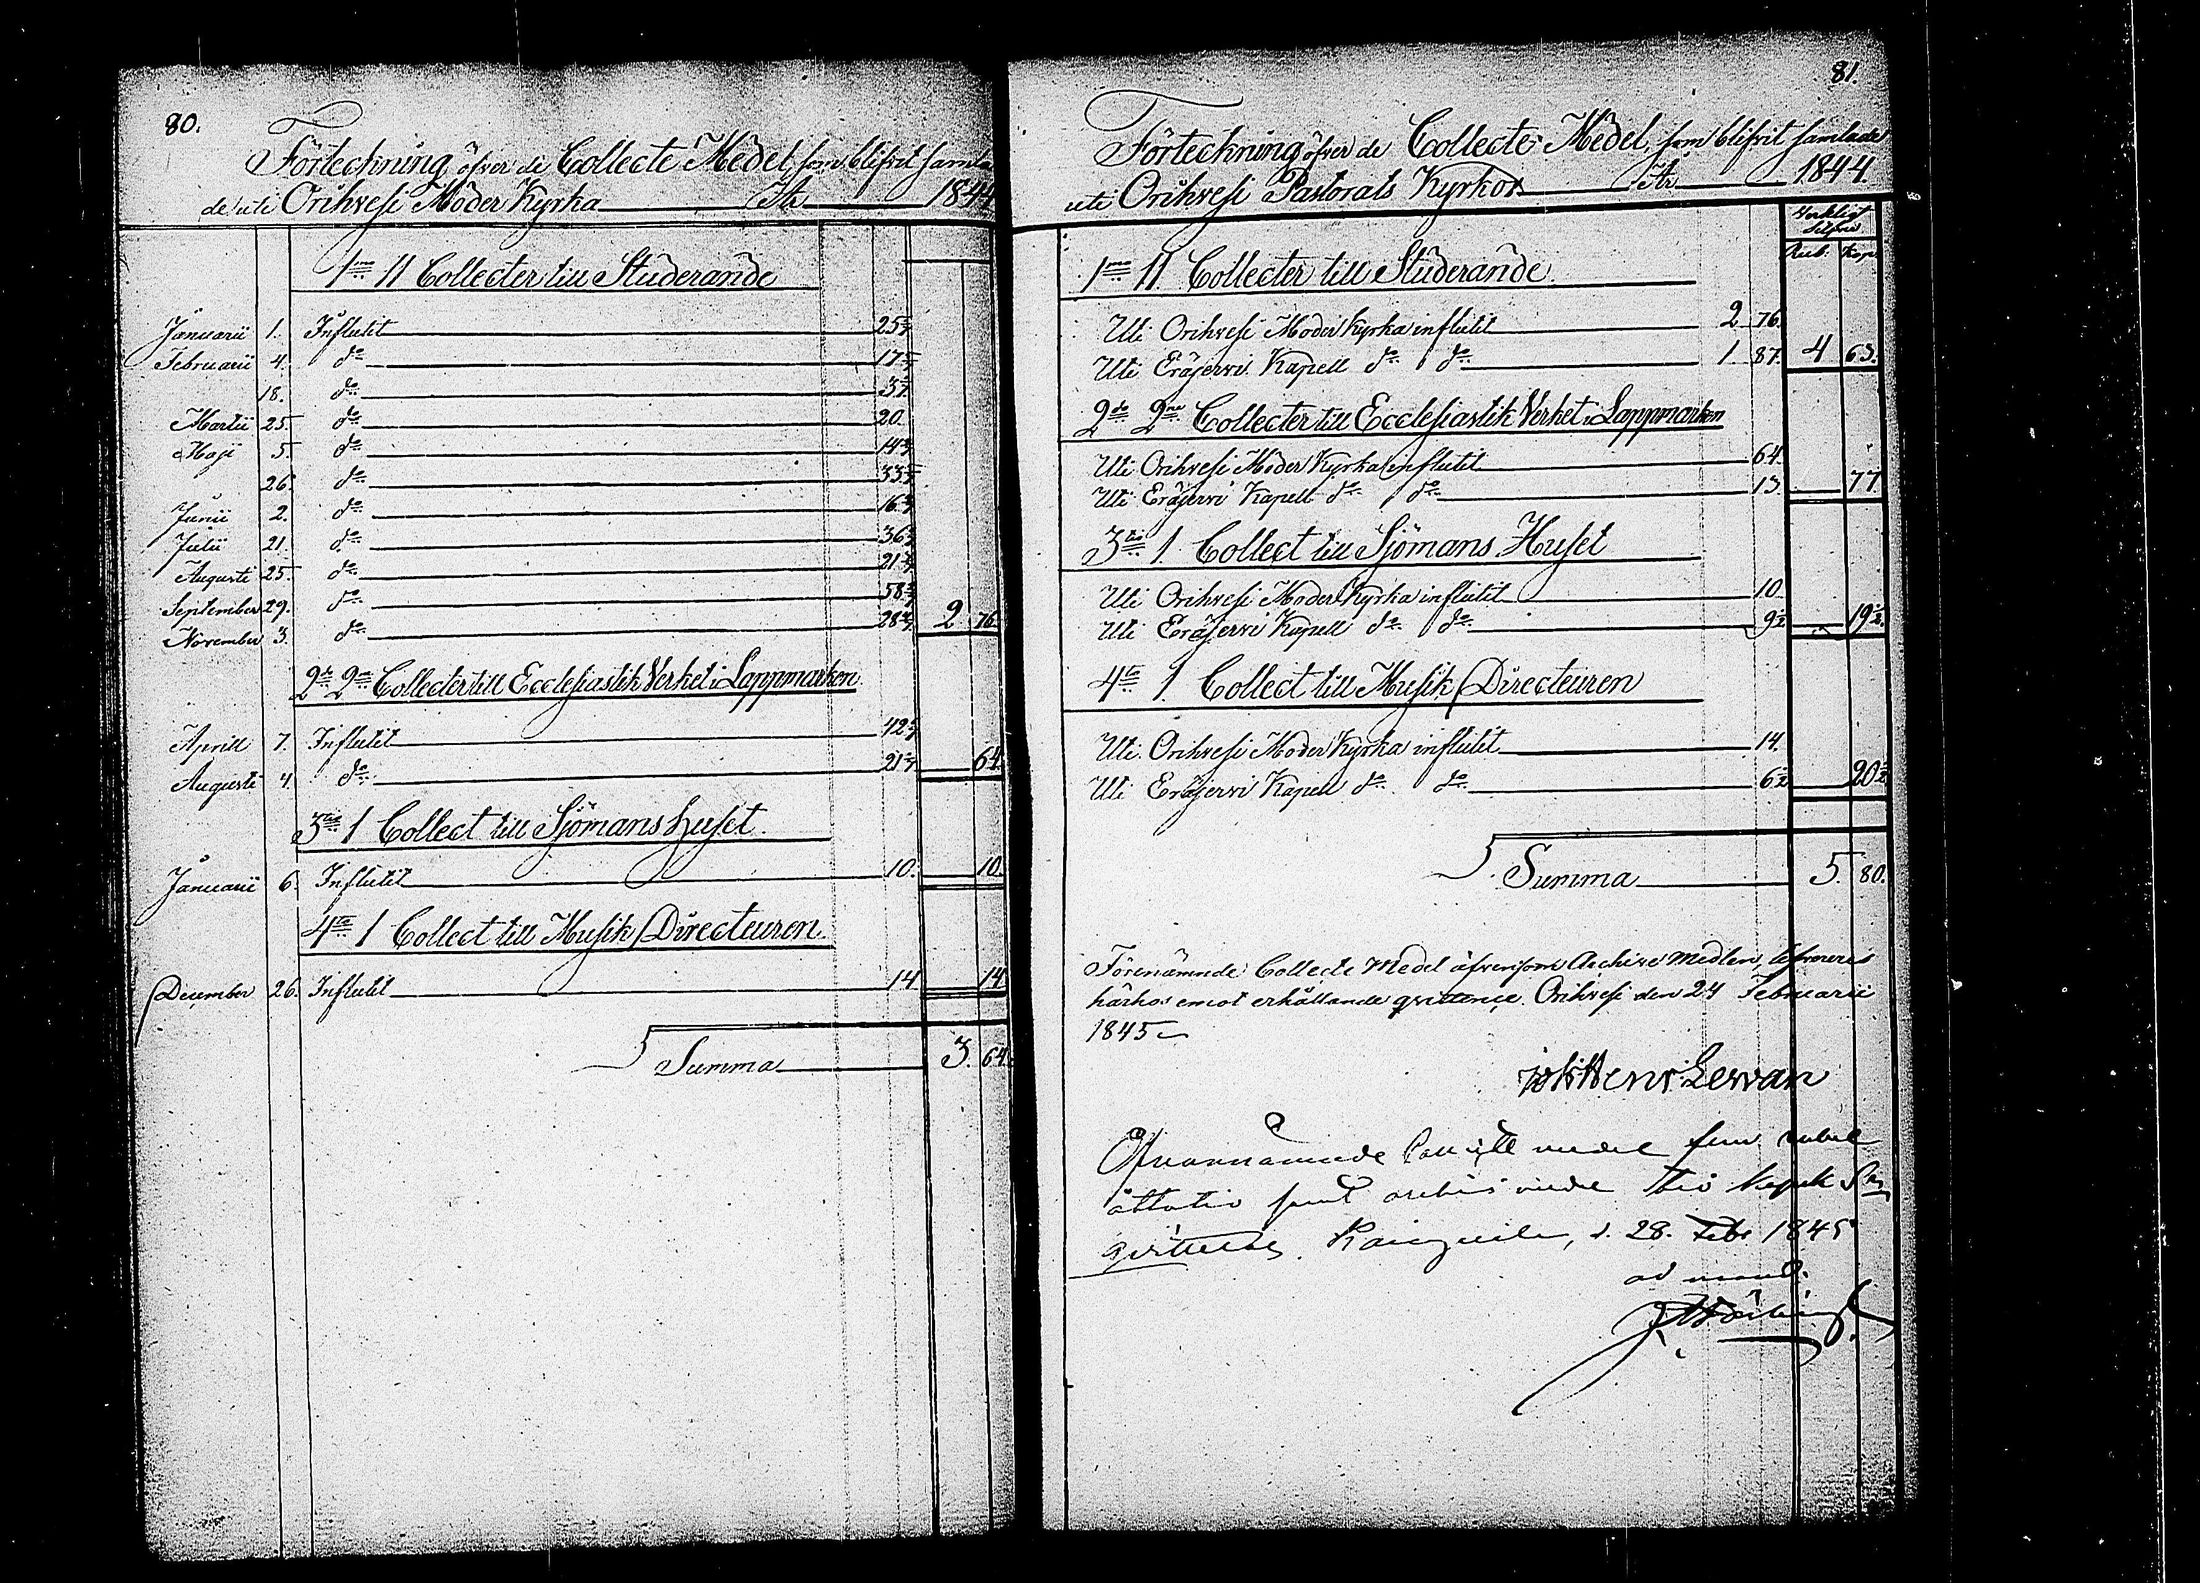 80.
Förteckning öfver de Collecte Medel, som blifvit samla
de uti Orihvesi Moder Kyrka År 1844
1mo 11 Collecter till Studerande
Januarii 1. Influtit 25 5/7
Februarii 4. do 17 5/7
18. do 3 5/7
Martii 25. do 20.
Maji 5. do 14 2/7
26. do 33 5/7
Junii 2. do 16 4/7
Julii 21. do 36
Augusti 25. do 21
September 29. do 58
November 3. do 28 2 76
2do 2ne Collecter till Ecclesiastik Verket i Lappmarken
Aprill 7. Influtit 42 6/7
Augusti 4. do 21 64.
3tio 1 Collect till Sjömanshuset
Januarii 6. Influtit 10. 10.
4to 1 Collect till Musik Directeuren.
December 26. Influtit 14 14
Summa 3. 64.
81.
Förteckning öfver de Collecte Medel, som blifvit samlade
uti Orihvesi Pastorats Kyrkor År 1844.
Verkligt
Silfver
Rub. Kop.
1mo 11 Collecter till Studerande.
Uti Orihvesi Moder Kyrka influtit 2 76.
Uti Eräjervi Kapell do do 1 87. 4 63.
2do 2ne Collecter till Ecclesiastik Verket i Lappmarken
Uti Orihvesi Moder Kyrka influtit 64.
Uti Eräjervi Kapell do do 13. 77
3tio 1. Collect till Sjömans Huset
Uti Orihvesi Moder Kyrka influtit 10.
Uti Eräjervi Kapell do do 9 1/2 19 1/2.
4to 1 Collect till Musik Directeuren
Uti Orihvesi Moder Kyrka influtit 14.
Uti Eräjervi Kapell do do 6 1/2 20 1/2
Summa 5. 80.
Förenämnde Collecte Medel äfvensom Archivs Medlen, lefvereras
härhos emot erhållande qvittence. Orihvesi den 24 Februarii
1845
Henr: Levan
Ofvannämnde Collecte medel fem rubel
åttatio samt archivs medel tio kopek
qvitteras. d. 28. Febr 1845
ad mand.